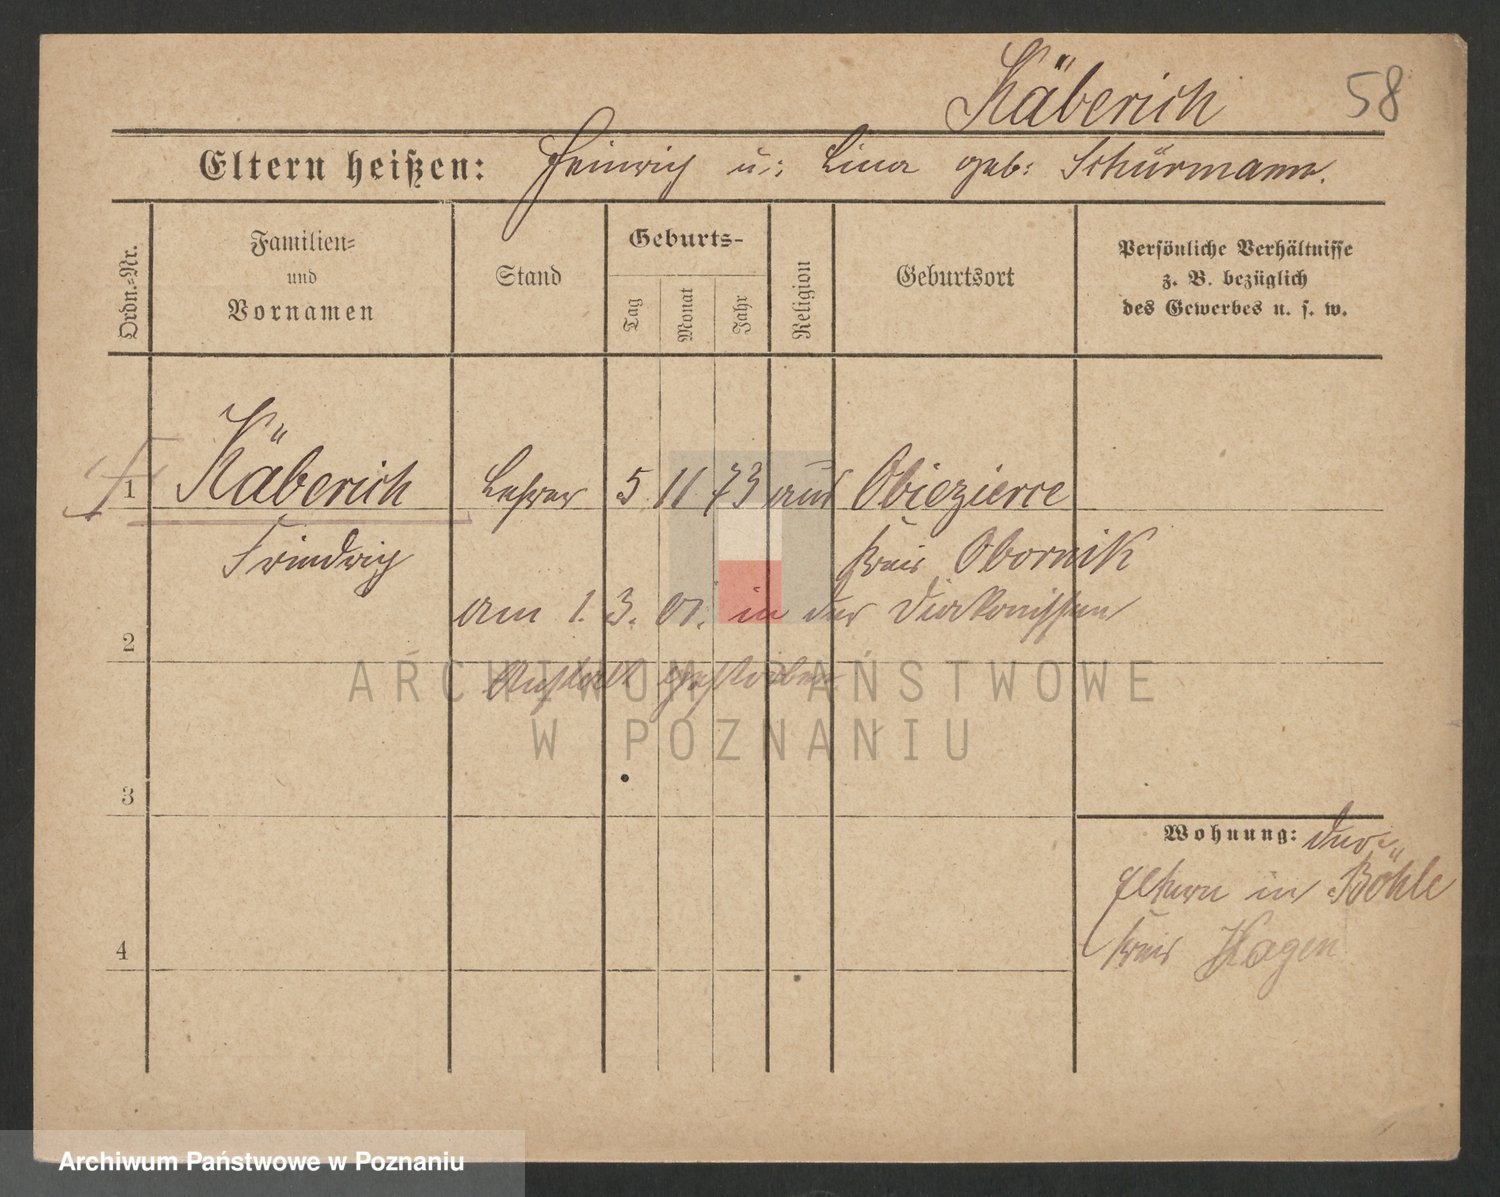 Käberich 58
Eltern heißen: Heinrich u: Lina geb: Schürmann.
Ordn.-Nr.
Familien-
und
Vornamen
Stand
Geburts-
Tag
Monat
Jahr
Religion
Geburtsort
Persönliche Verhältnisse
z. B. bezüglich
des Gewerbes u. s. w.
1 Käberich Lehrer 5 11 73 aus Obiezierre
Friedrich Kreis Obornik
am 1. 3. 01. in der Diakonissen
2
Anstalt gestorben
ARCHIWUM PAŃSTWOWE
W POZNANIU
3
Wohnung: der
Eltern in Böhle
Kreis Hagen
4
Archiwum Państwowe w Poznaniu